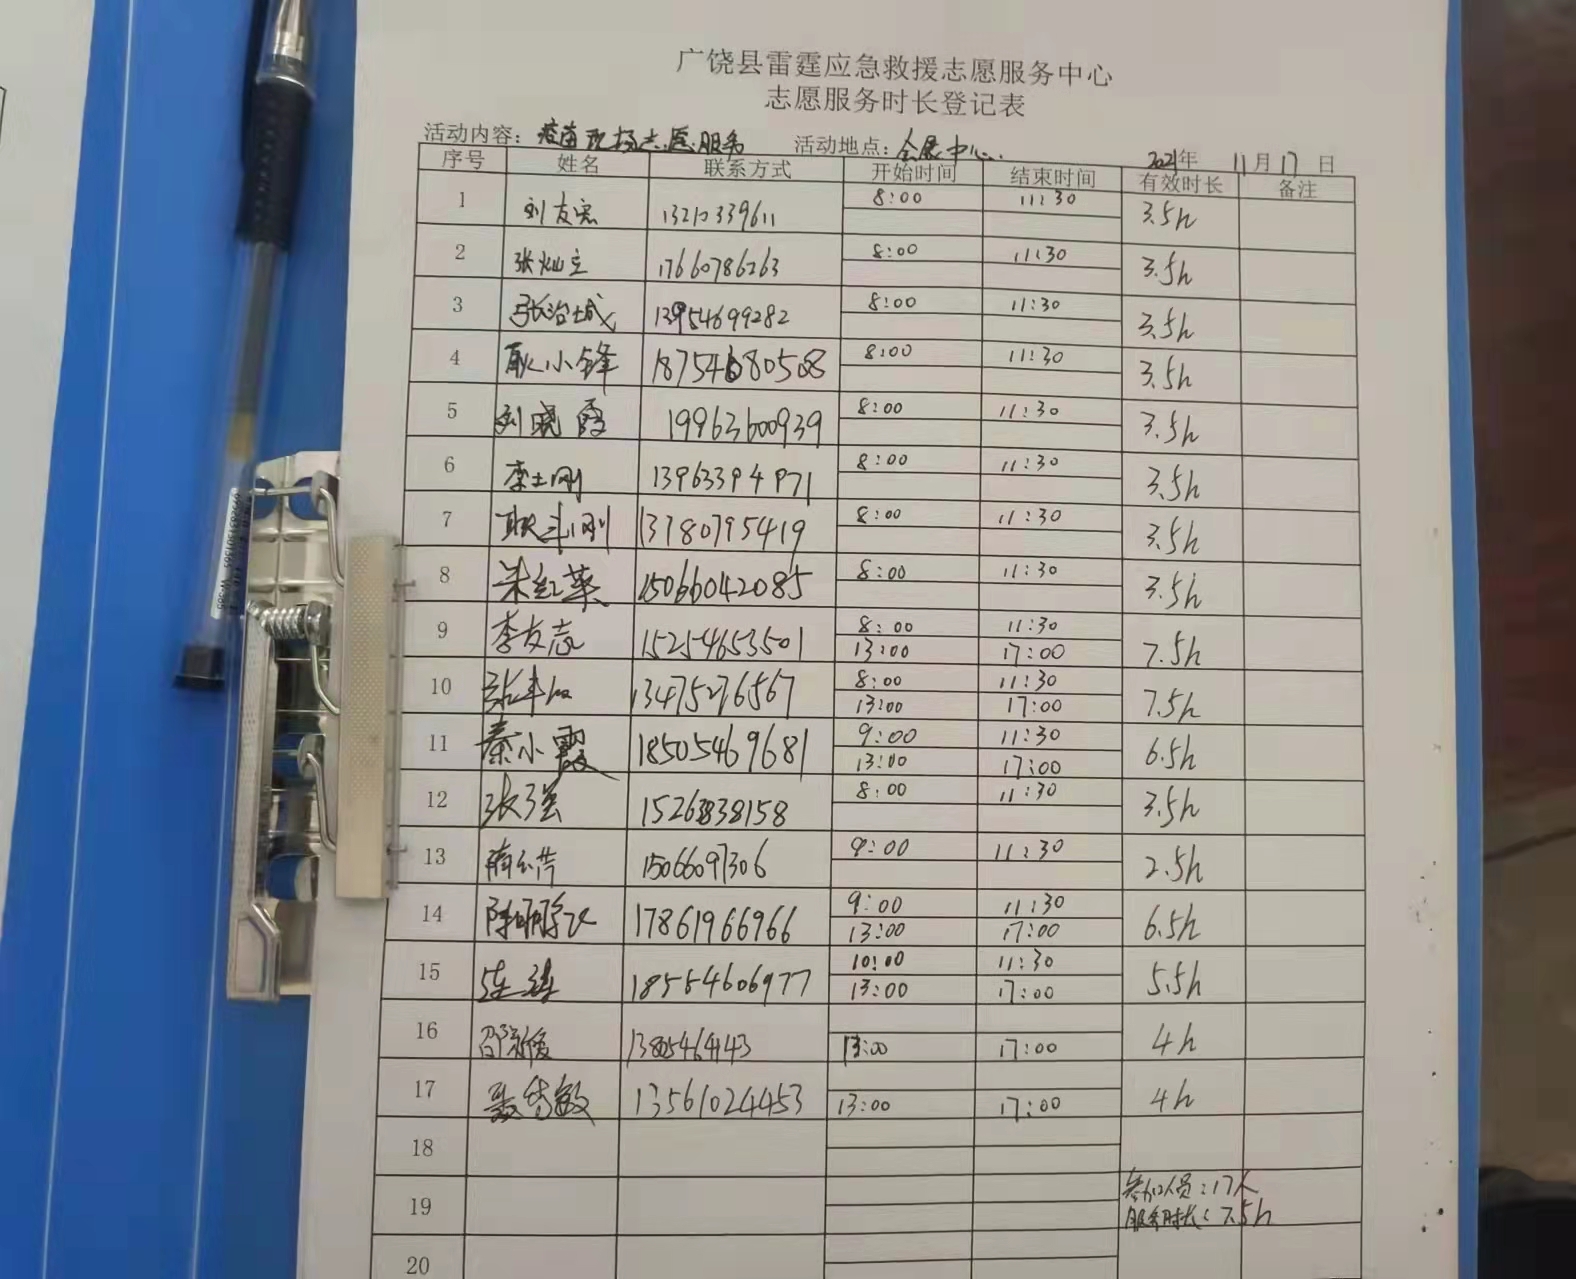 广饶县雷霆应急救援志愿服务中心
志愿服务时长登记表
活动内容：疫苗现场志愿服务 活动地点：会展中心. 2021年 11月17日
序号 姓名 联系方式 开始时间 结束时间 有效时长 备注
1 刘友宏 13210339611 8:00 11:30 3.5h
2 张灿立 17660786263 8:00 11:30 3.5h
3 张治城 13954699282 8:00 11:30 3.5h
4 耿小锋 18754680508 8:00 11:30 3.5h
5 刘晓霞 19963600939 8:00 11:30 3.5h
6 李士刚 13963394971 8:00 11:30 3.5h
7 耿斗刚 13780795419 8:00 11:30 3.5h
8 朱红英 15066042085 8:00 11:30 3.5h
9 李友志 15254653501 8:00 11:30 7.5h
13:00 17:00
10 13475276567 8:00 11:30 7.5h
13:00 17:00
11 秦小霞 18505469681 9:00 11:30 6.5h
13:00 17:00
12 张强 15263838158 8:00 11:30 3.5h
13 15066097306 9:00 11:30 2.5h
14 陈鹏飞 17861966966 9:00 11:30 6.5h
13:00 17:00
15 18554606977 10:00 11:30 5.5h
13:00 17:00
16 13:00 17:00 4h
17 聂传敏 13561024453 13:00 17:00 4h
18
19 参加人员：17人
服务时长：7.5h
20